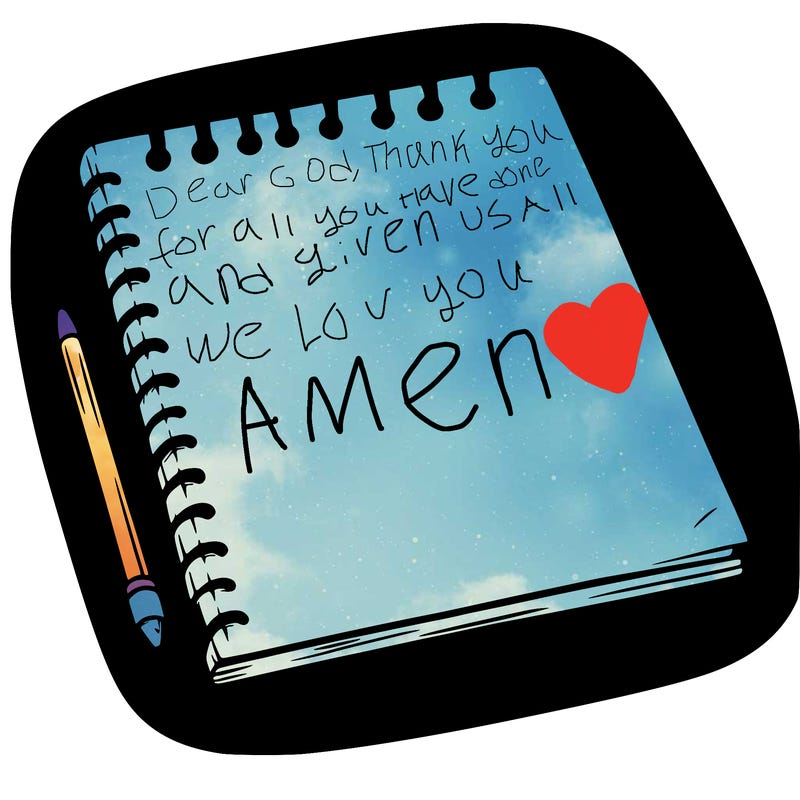 Dear God, Thank you
for all you Have done
and given us All
we Lov you
AMen